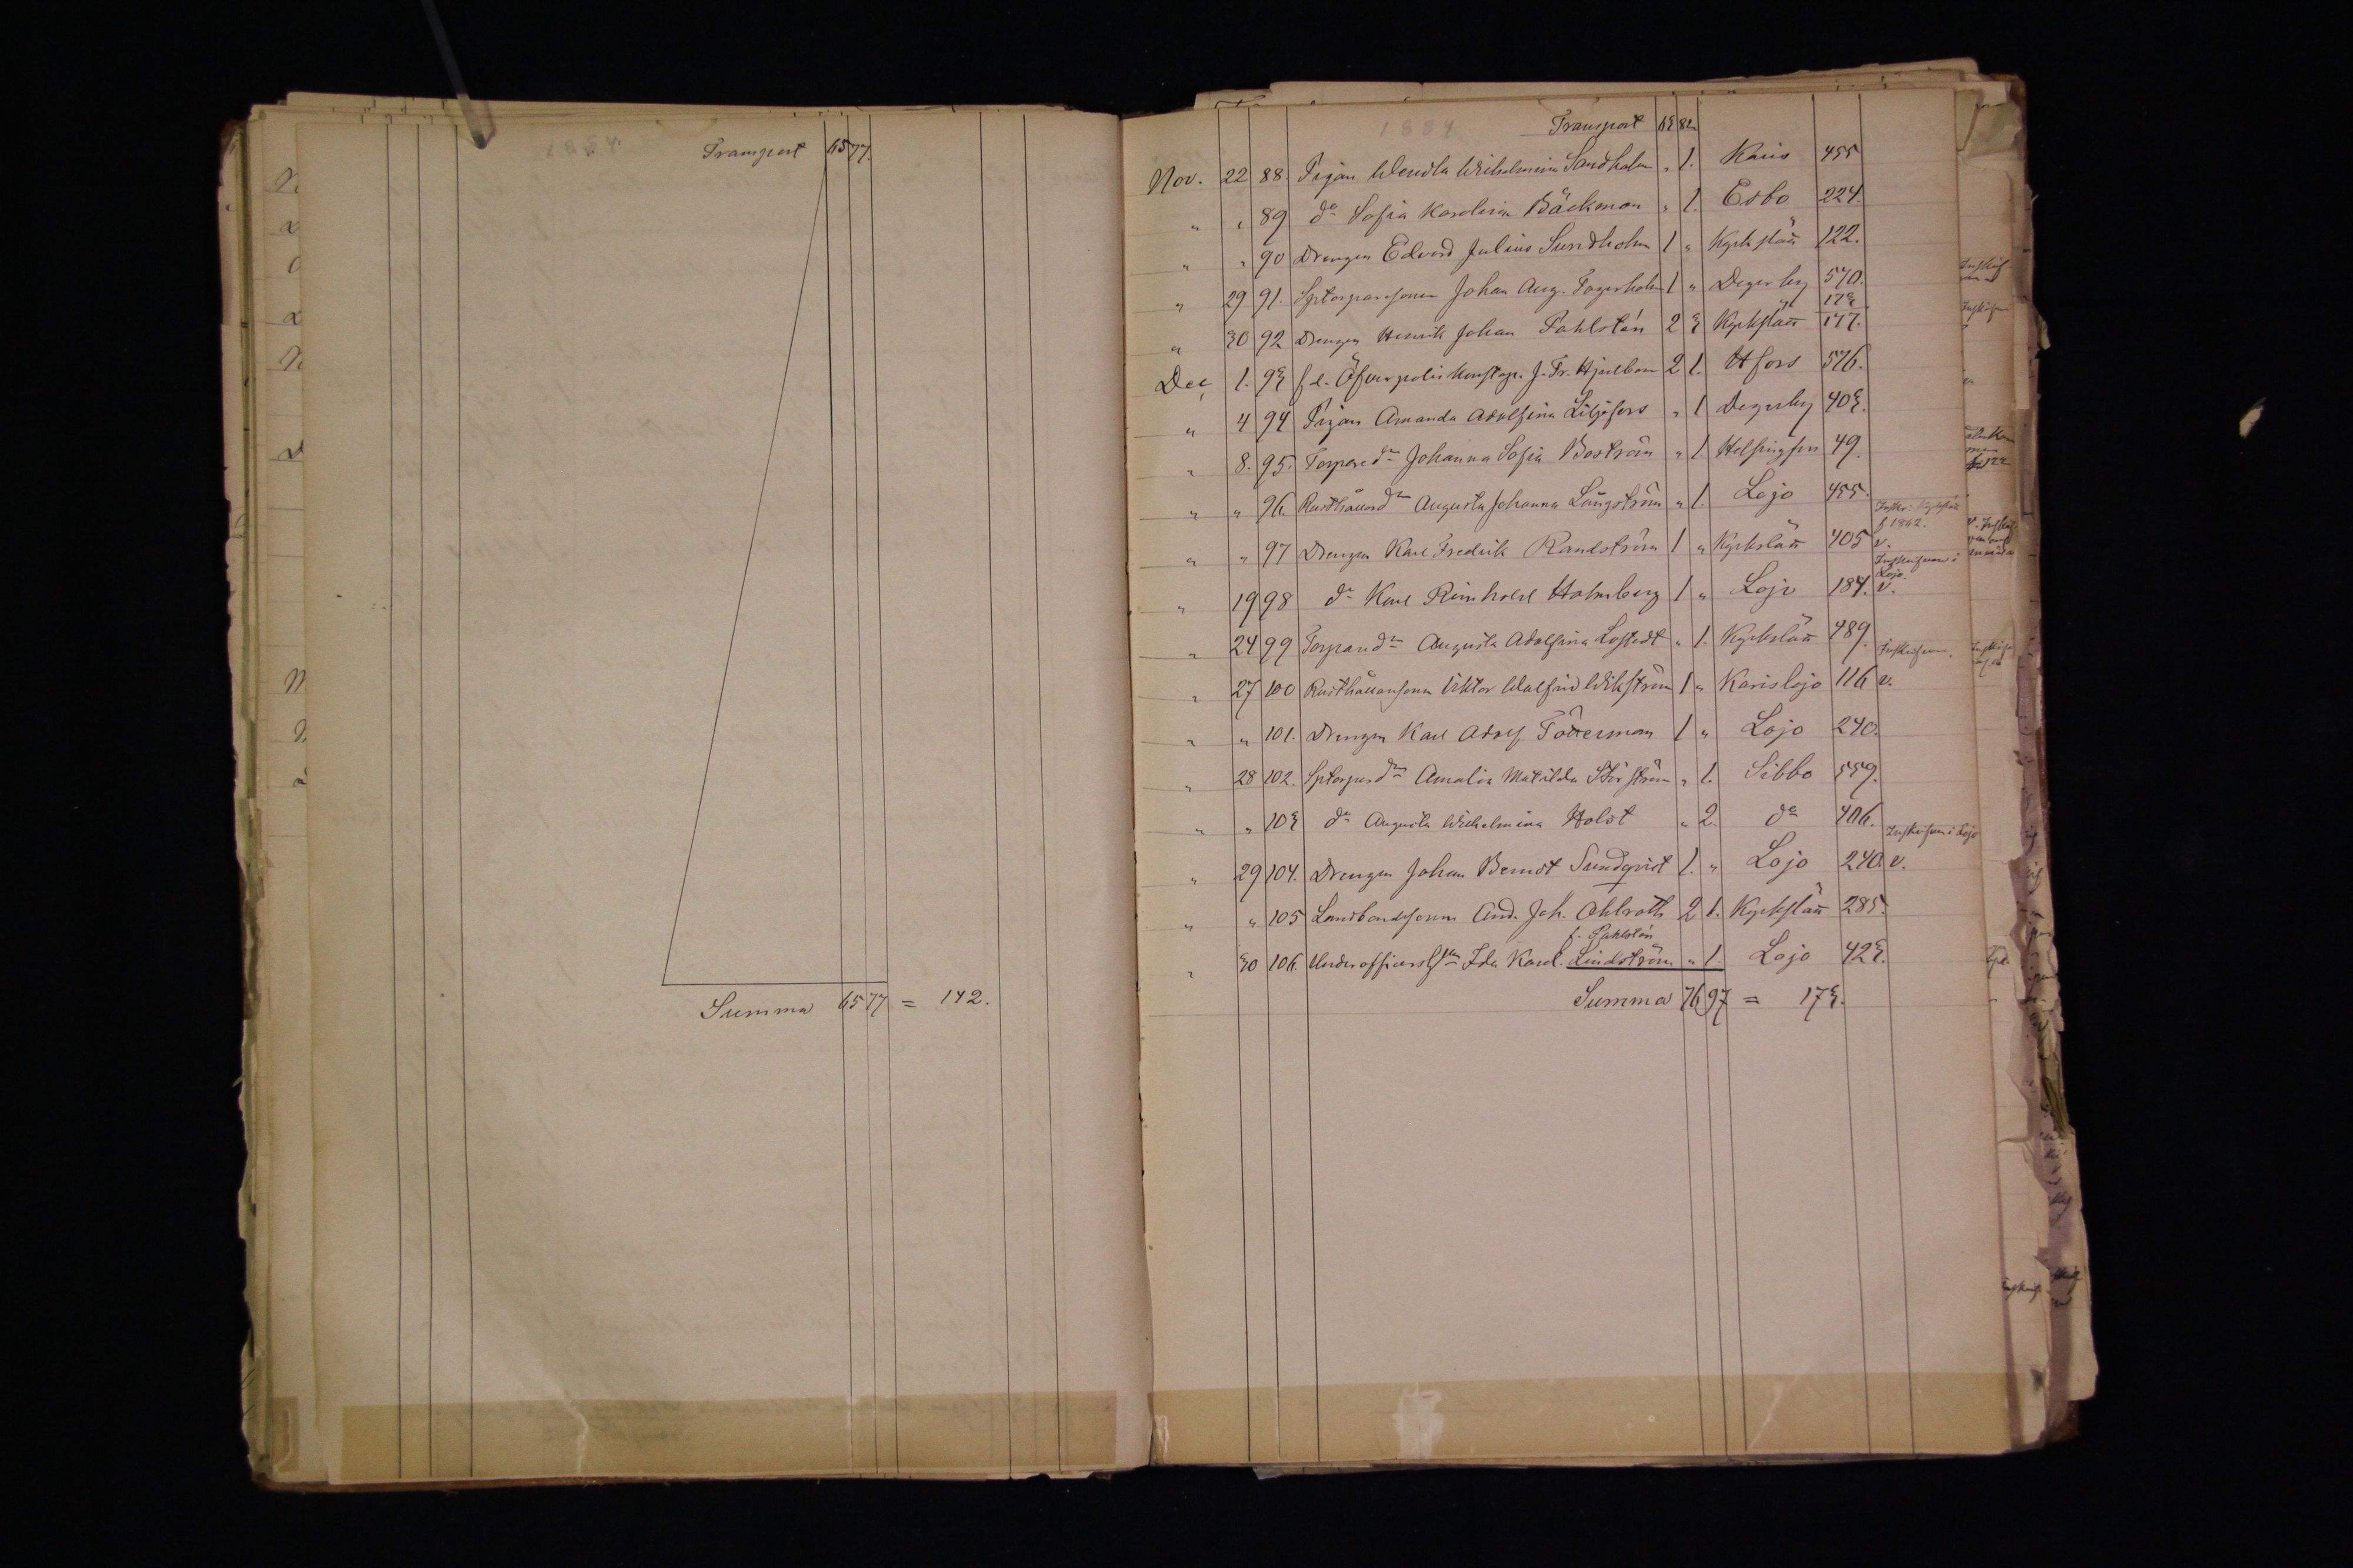 1884
Transport 65 77.
Summa 65 77 = 142.
1884 Transport 63 82
Nov. 22 88. Pigan Wendla Wilhelmina Sandholm " 1. Karis 455
" " 89 do Sofia Karolina Bäckman " 1. Esbo 224.
" " 90 Drengen Edvard Julius Sundholm 1 " Kyrkslätt 122.
" 29 91. Sptorparesonen Johan Aug. Fagerholm 1 " Degerby 570.
173
" 30 92 Drengen Henrik Johan Pahlstén 2 3 Kyrkslätt 177.
Dec. 1. 93 f.d. Öfverpoliskonstap. J. Fr. Hjulbom 2 1. Hfors 576.
" 4 94 Pigan Amanda Adolfina Liljefors " 1 Degerby 403.
" 8. 95. Torpared:n Johanna Sofia Boström " 1. Helsingfors 49.
" " 96. Rusthållard:n Augusta Johanna Långström " 1. Lojo 455.
Inskr. i Kyrkslätt f. 1862.
" " 97 Drengen Karl Fredrik Randström 1 " Kyrkslätt 405 v.
Inskrifven i Lojo.
" 19 98 do Karl Reinhold Holmberg 1 " Lojo 184. v.
" 24 99 Torpared:n Augusta Adolfina Lostedt " 1. Kyrkslätt 489.
Inskrifven.
" 27 100 Rusthållaresonen Viktor Walfrid Wikström 1 " Karislojo 116 v.
" " 101. Drengen Karl Adolf Tötterman 1 " Lojo 240.
" 28 102. Sptorpard:n Amalia Matilda Stirström " 1. Sibbo 559.
" " 103 do Augusta Wilhelmina Holst " 2. do 406.
Inskrifven i Lojo
" 29 104. Drengen Johan Berndt Sundqvist 1. " Lojo 240. v.
" " 105 Landbondesonen And. Joh. Ahlroth 2 1. Kyrkslätt 285.
f. Pahlstén
" 30 106. Underofficers Ida Karol. Lindström " 1. Lojo 423.
Summa 76 97 = 173.